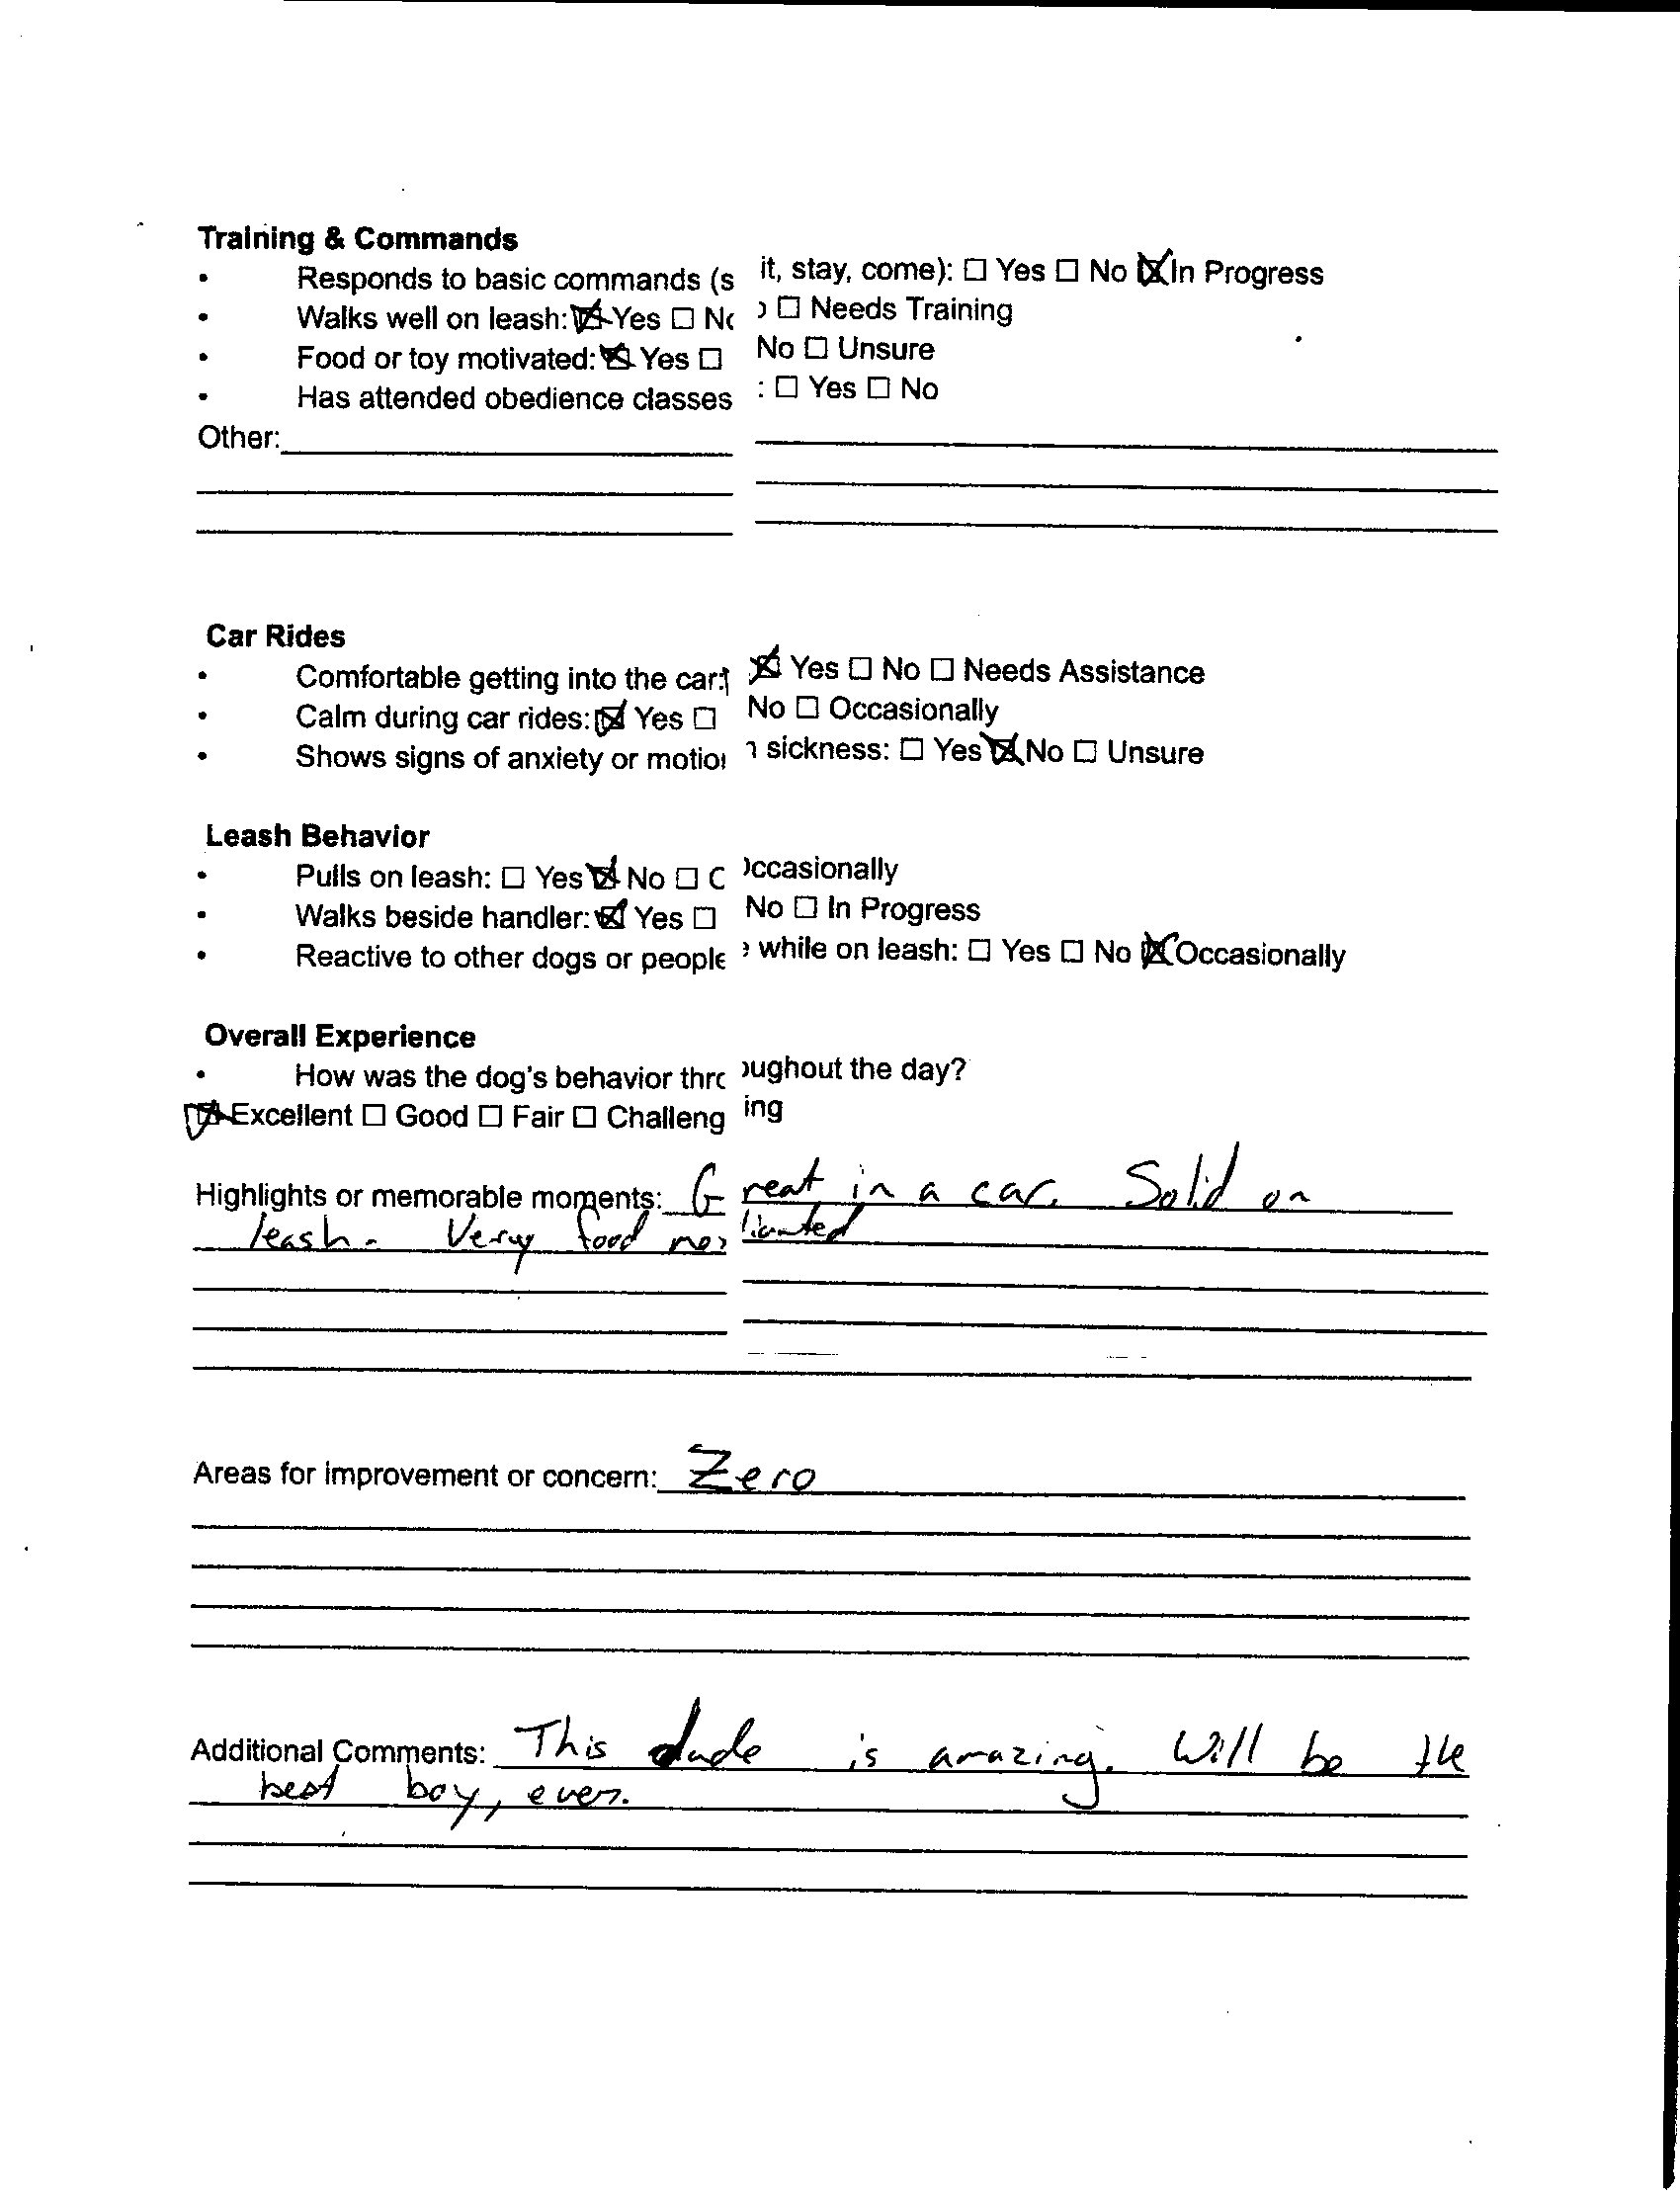 Training & Commands
• Responds to basic commands (sit, stay, come): ☐ Yes ☐ No ☒ In Progress
• Walks well on leash: ☒ Yes ☐ No ☐ Needs Training
• Food or toy motivated: ☒ Yes ☐ No ☐ Unsure
• Has attended obedience classes: ☐ Yes ☐ No
Other:
Car Rides
• Comfortable getting into the car: ☒ Yes ☐ No ☐ Needs Assistance
• Calm during car rides: ☒ Yes ☐ No ☐ Occasionally
• Shows signs of anxiety or motion sickness: ☐ Yes ☒ No ☐ Unsure
Leash Behavior
• Pulls on leash: ☐ Yes ☒ No ☐ Occasionally
• Walks beside handler: ☒ Yes ☐ No ☐ In Progress
• Reactive to other dogs or people while on leash: ☐ Yes ☐ No ☒ Occasionally
Overall Experience
• How was the dog's behavior throughout the day?
☒ Excellent ☐ Good ☐ Fair ☐ Challenging
Highlights or memorable moments: Great in a car. Solid on
leash. Very food
Areas for improvement or concern: Zero
Additional Comments: This dude is amazing. Will be the
best boy, ever.